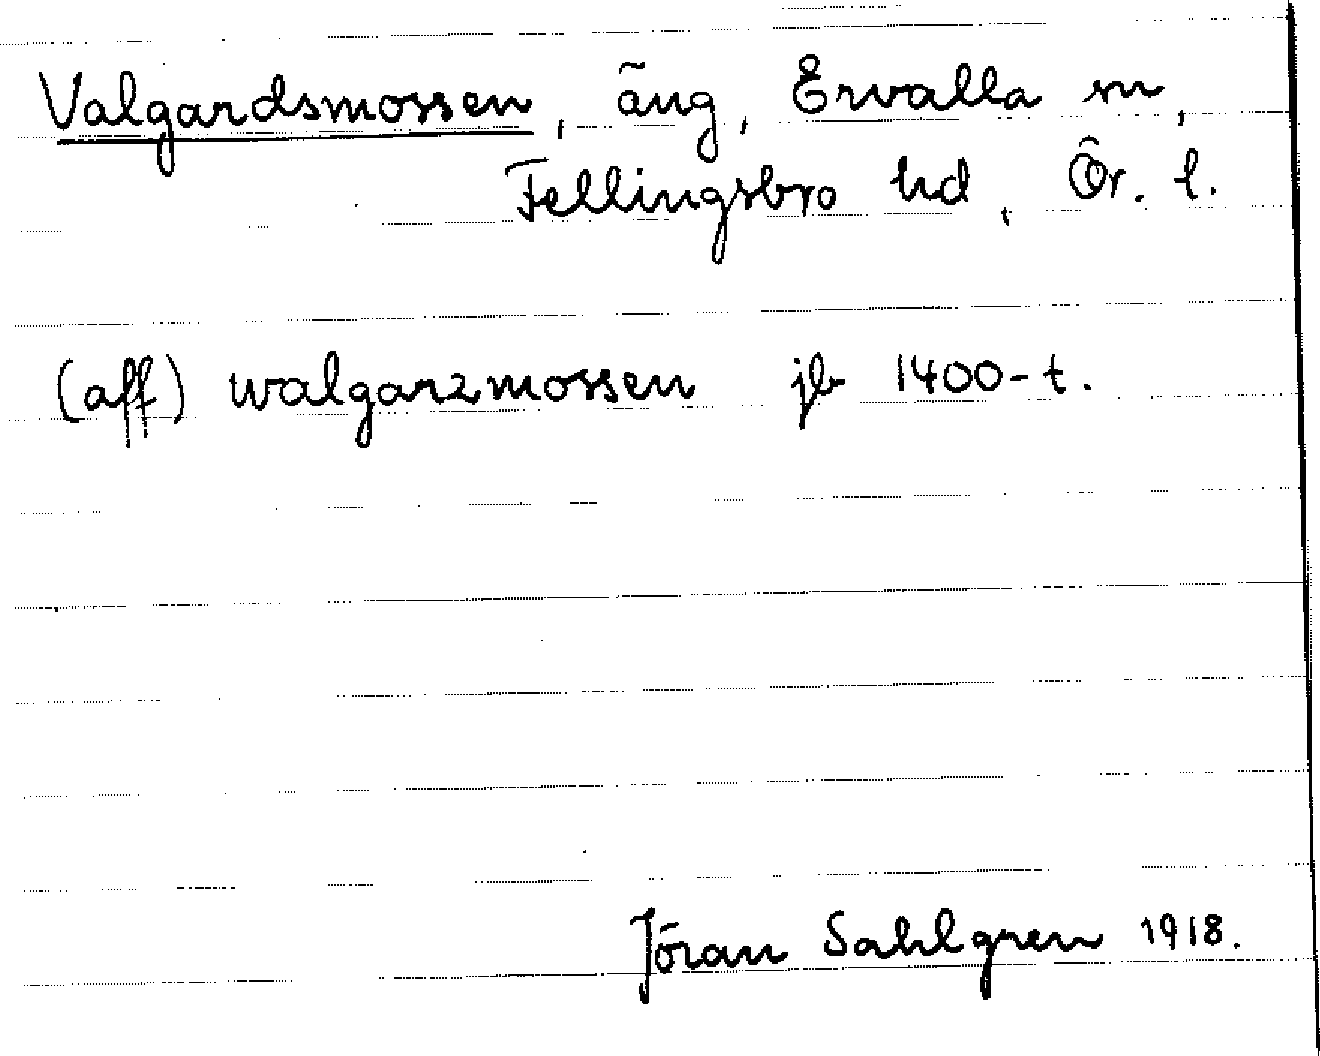 Valgardsmossen, äng, Ervalla sn,
Fellingsbro hd, Ör. l.
(aff) walgarzmossen jb 1400-t.
Jöran Sahlgren 1918.